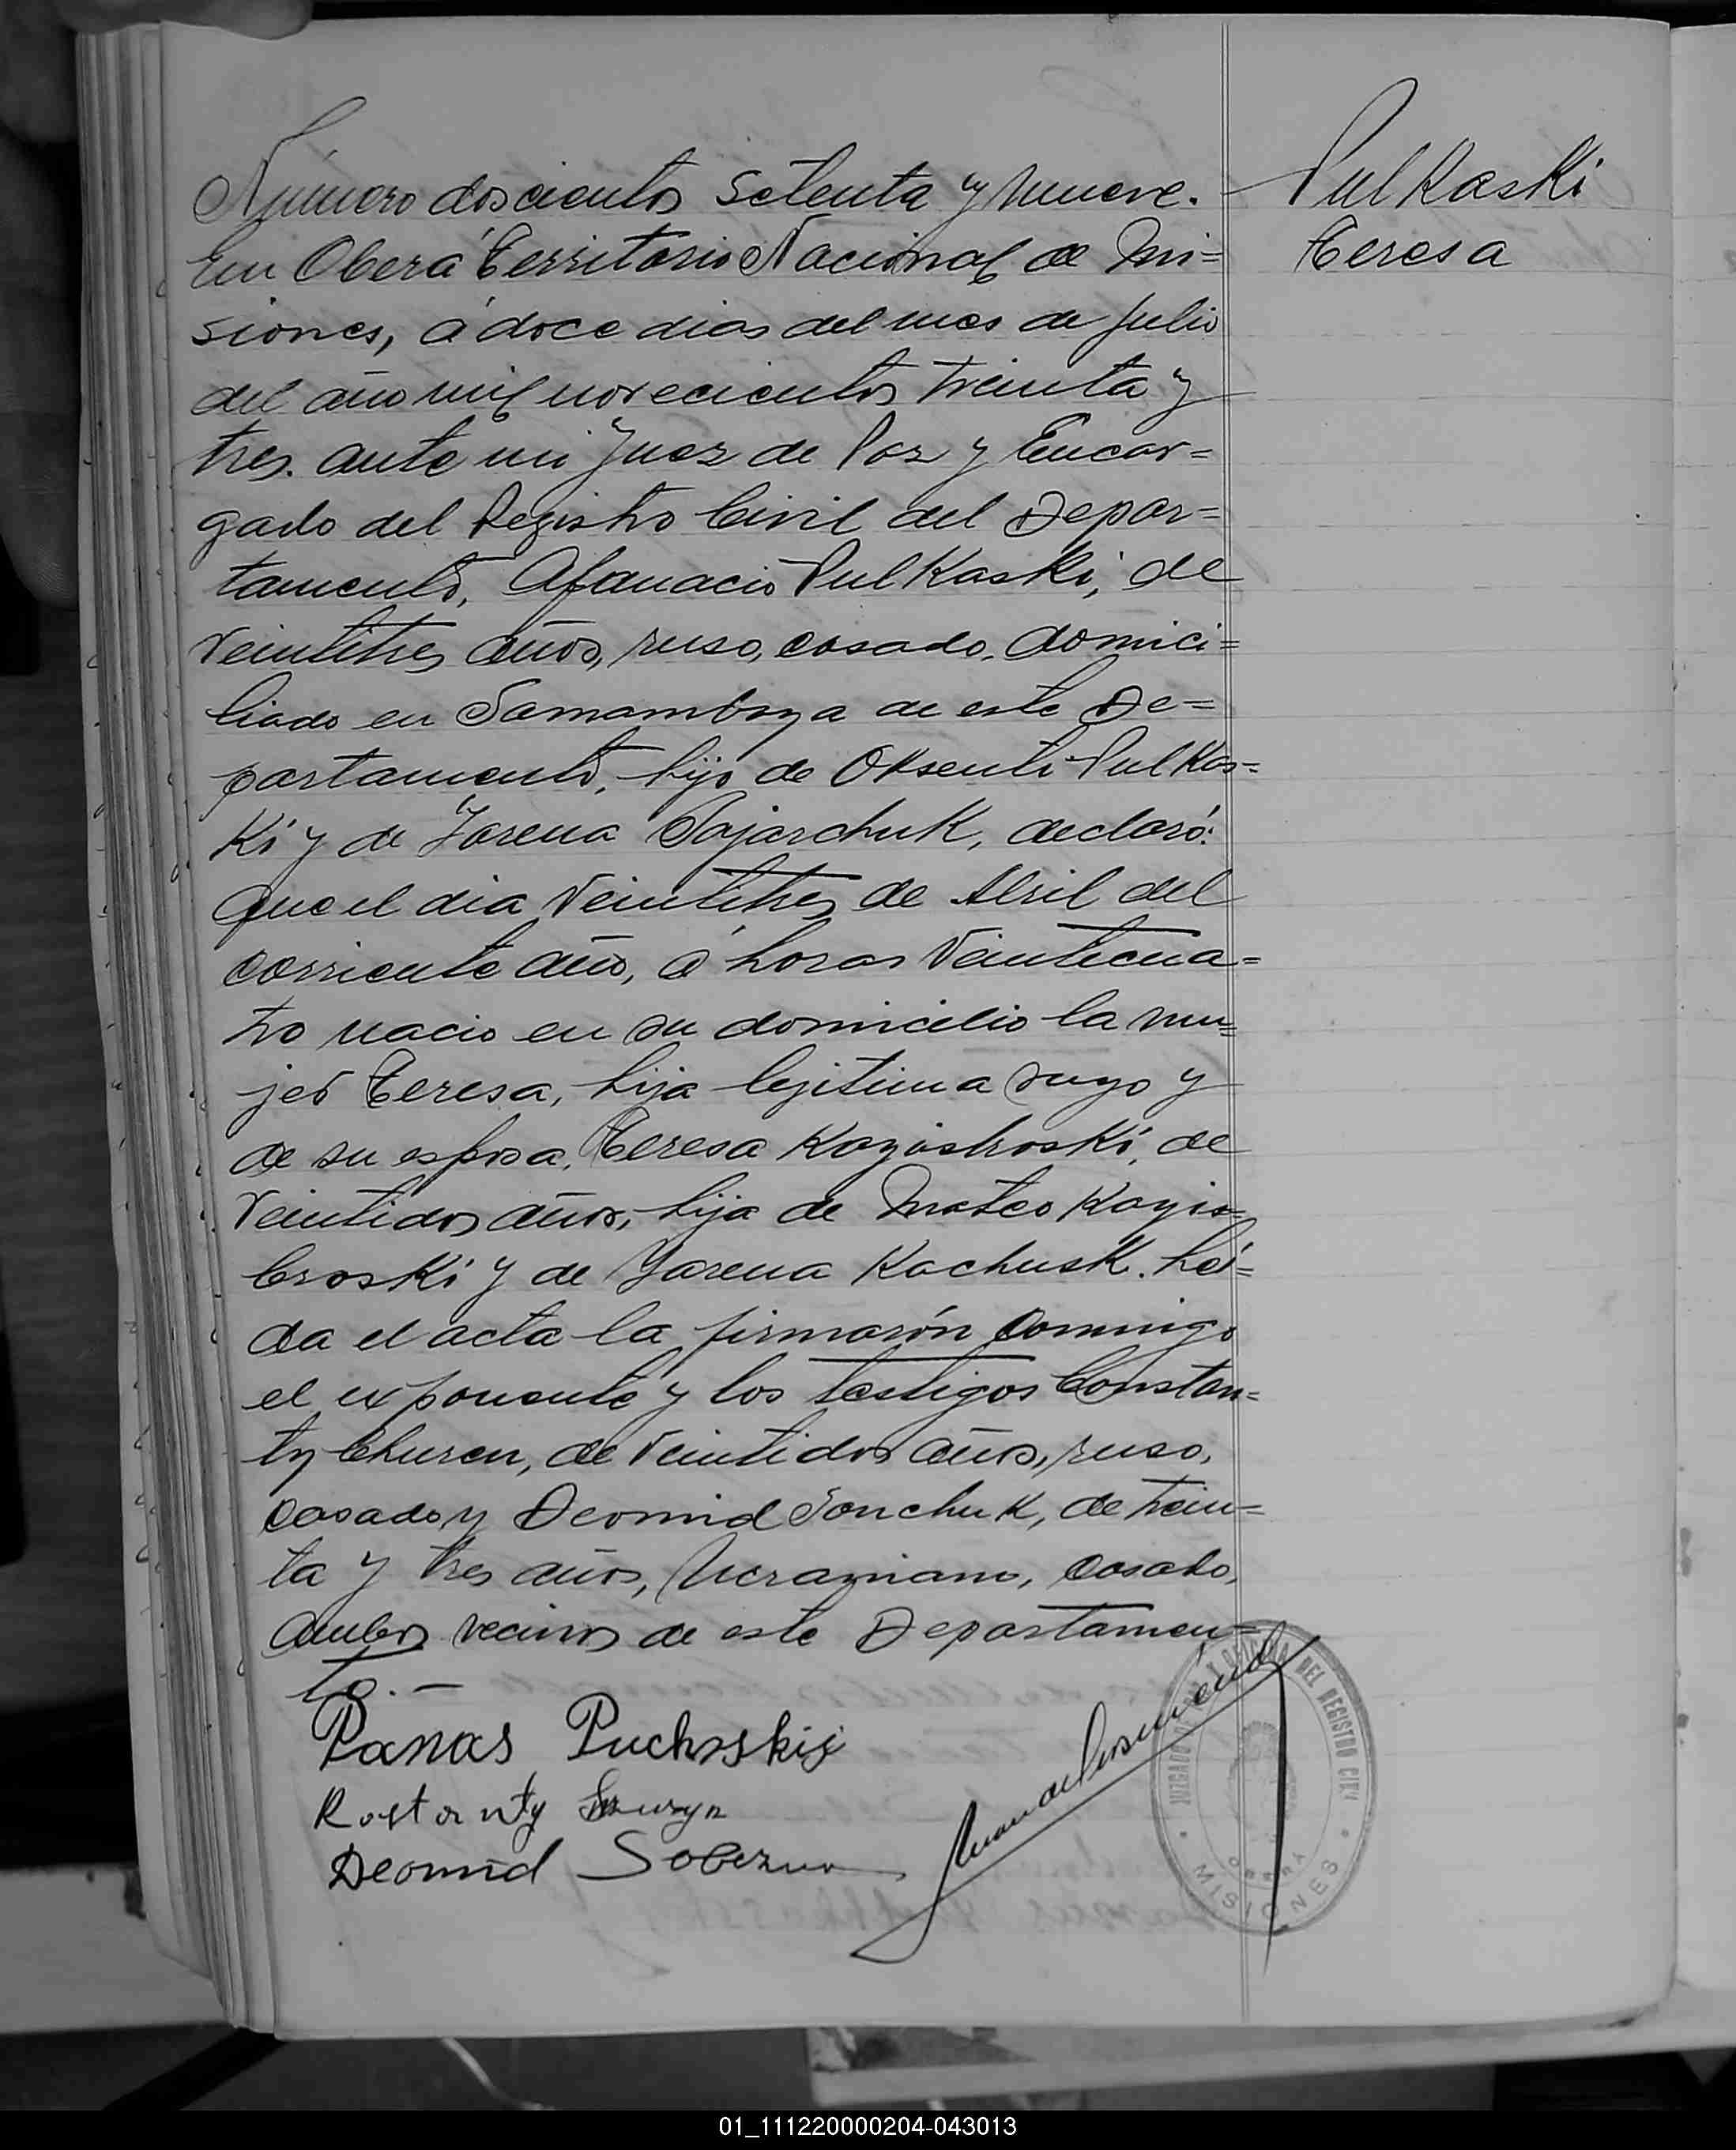 Pulkaski
Teresa
Número doscientos setenta y nueve.
En Oberá Territorio Nacional de Mi=
siones, á doce dias del mes de Julio
del año mil novecientos treinta y
tres. ante mi Juez de Paz y Encar=
gado del Registro Civil del Depar=
tamento, Afanacio Pulkaski, de
veintitres años, ruso, casado, domici=
liado en Samambaya de este De=
partamento, hijo de Oksenti Pulkas=
ki y de Yarena Bojarchuk, declaró:
Que el dia veintitres de Abril del
corriente año, á horas veinticua=
tro nacio en su domicilio la mu=
jer Teresa, hija legitima suyo y
de su esposa, Teresa Kozistroski, de
veintidos años, hija de Mateo
y de Yarena Kochusk. Leí=
da el acta la firmarón conmigo
el exponente y los testigos Constan=
ty Churen, de veintidos años, ruso,
casado y Deomid Sonchuk, de trein=
ta y tres años, Ucraniano, casado,
ambos vecinos de este Departamen=
to.—
Panas
Kostanty
Deomid
JUZGADO DE PAZ Y OFICINA DEL REGISTRO CIVIL
OBERÁ
MISIONES
01_111220000204-043013